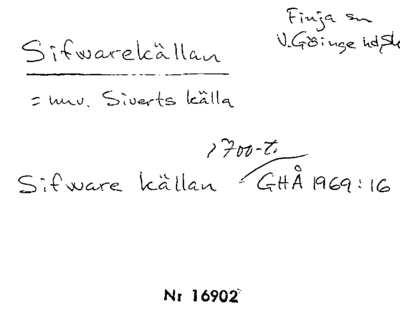 Finja sn
V. Göinge hd, Sk
Sifwarekällan
= nuv. Siverts källa
1700-t.
Sifware källan - GHÅ 1969:16
Nr 16902